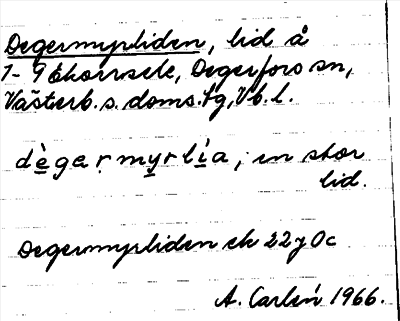 Degermyrliden, lid å
1-9 Ekorrsele, Degerfors sn,
Västerb. s. doms. tg, Vb. l.
dègaṛmyrlìa; en stor
lid.
Degermyrliden ek 22 y 0c
A. Carlén 1966.